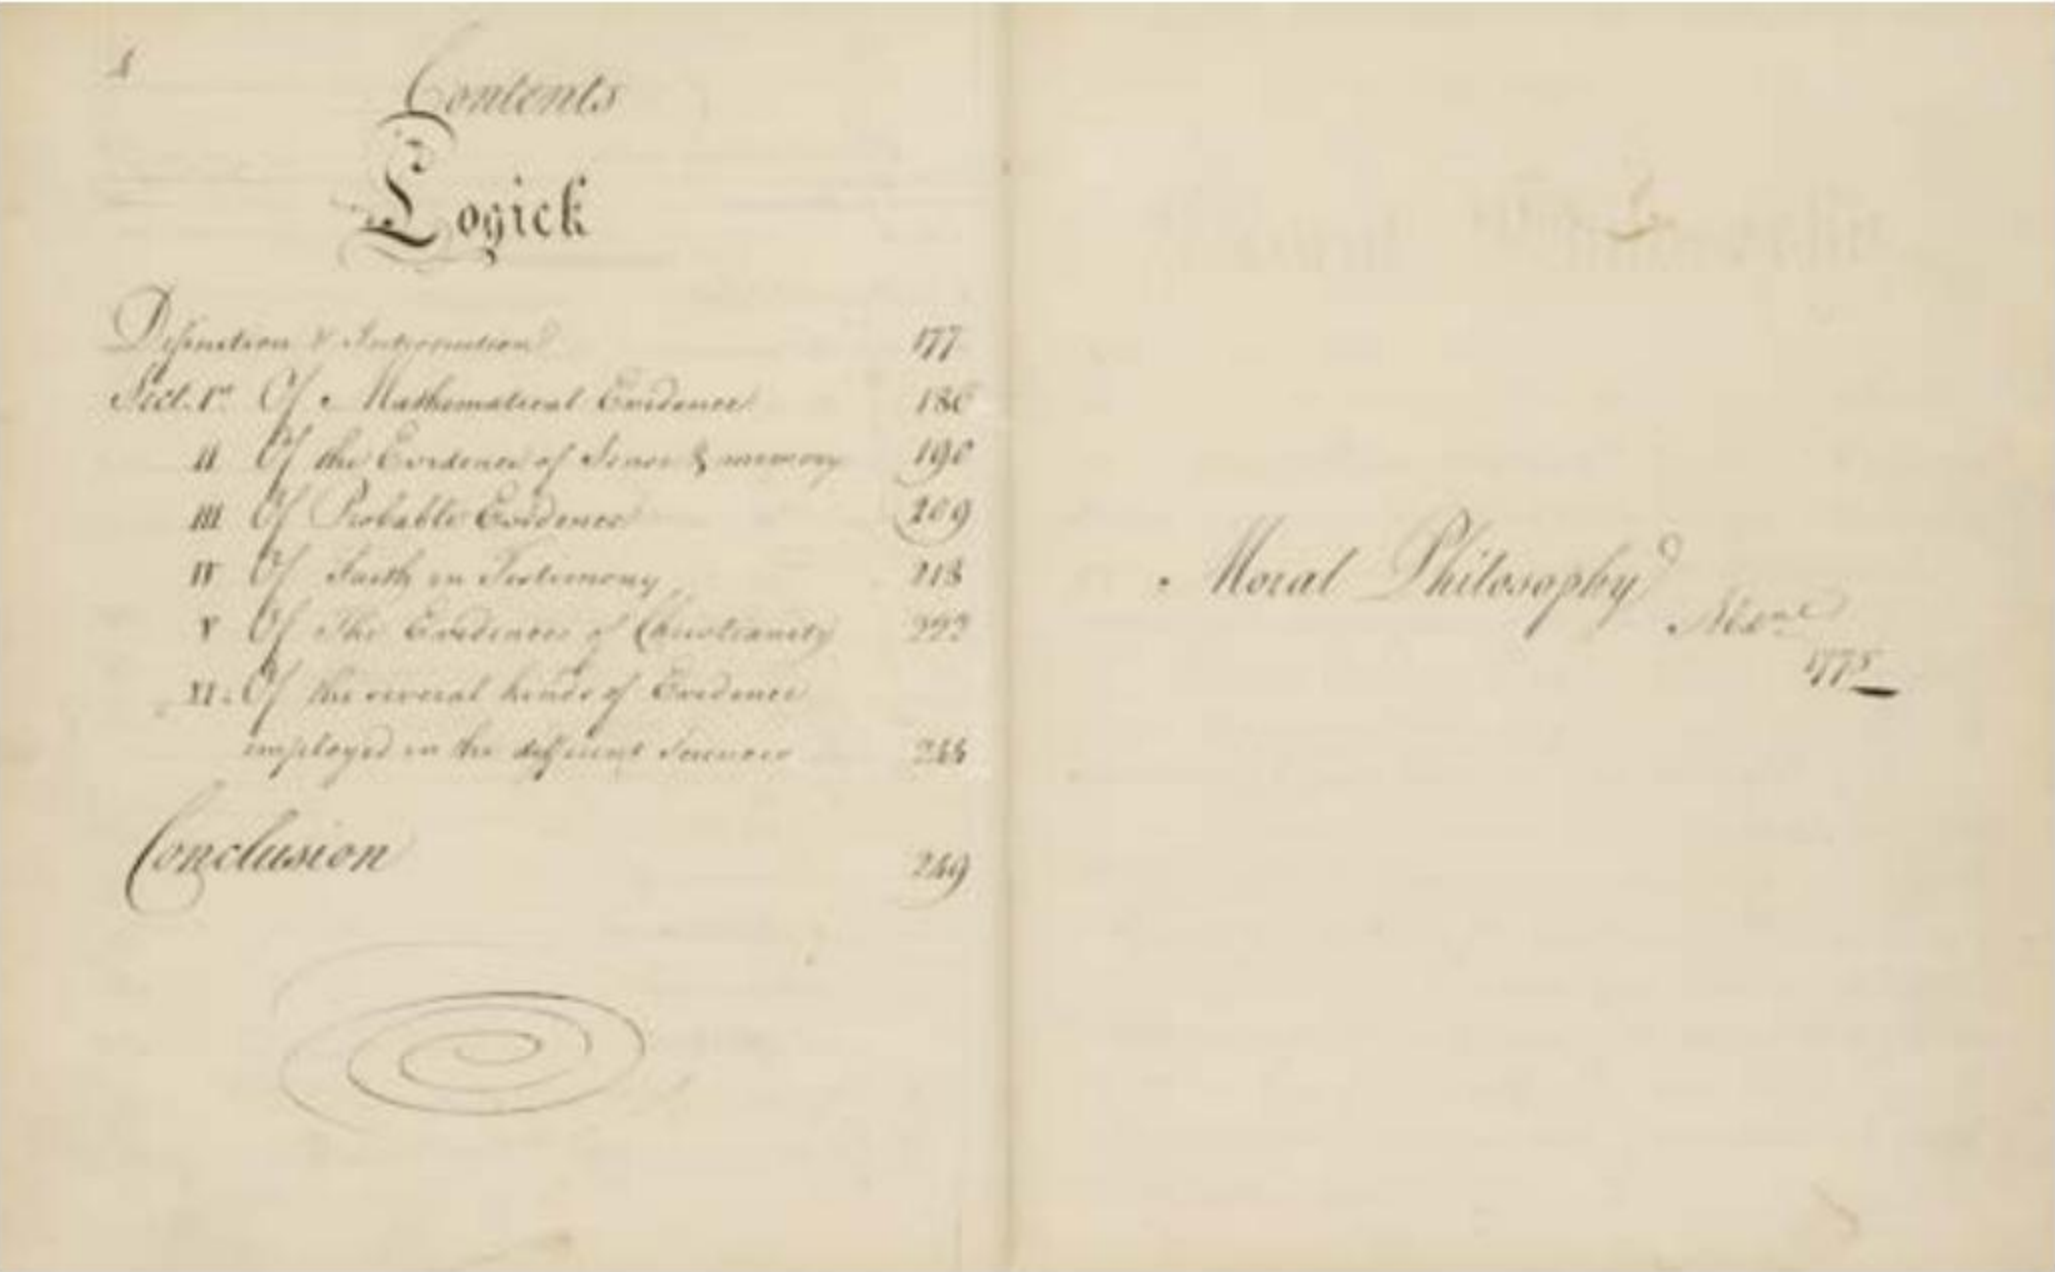 Contents
Logick
Definition & Introduction 177
Sect. 1st Of Mathematical Evidence 186
II Of the Evidence of Sense & memory 190
III Of Probable Evidence 209
IV Of Faith in Testimony 218
V Of The Evidences of Christianity 222
VI. Of the several kinds of Evidence
employed in the different Sciences 244
Conclusion 249
Moral Philosophy
1775